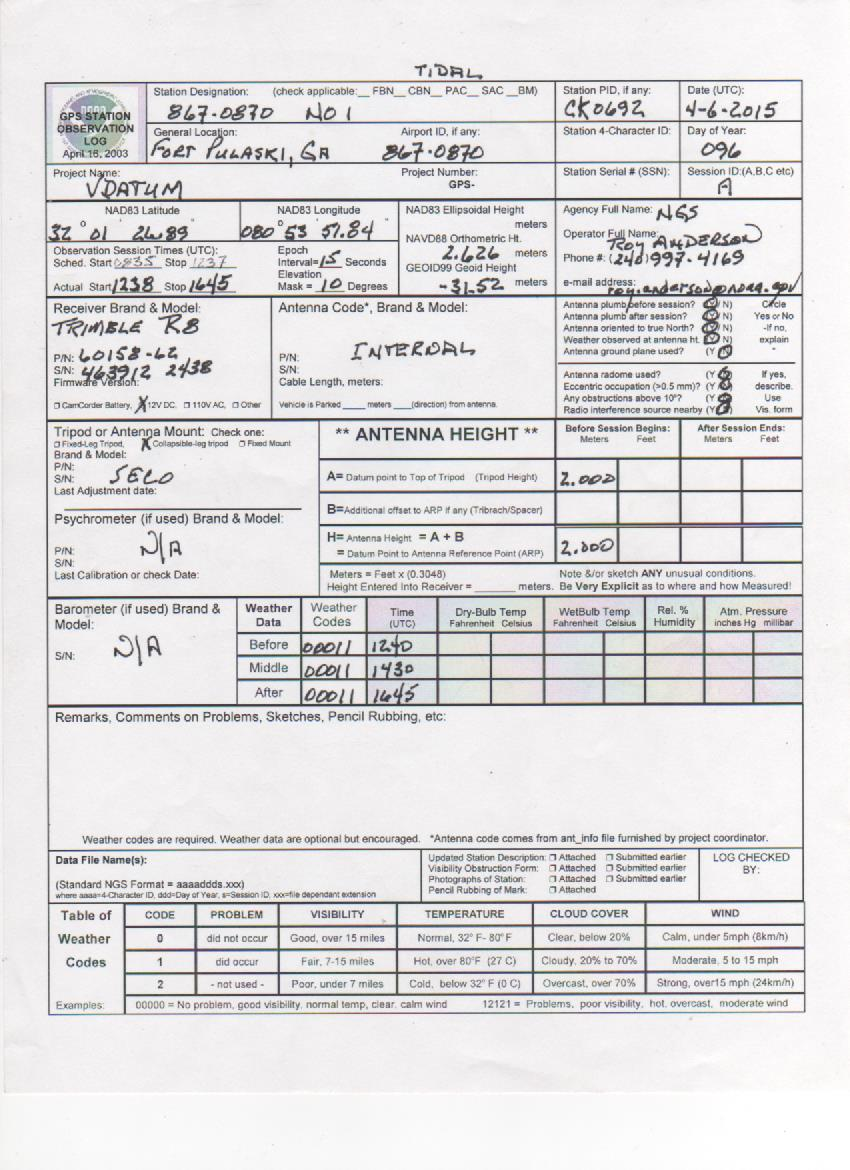 TIDAL
GPS STATION OBSERVATION LOG
April 16, 2003
Station Designation: (check applicable:__ FBN__ CBN__ PAC__ SAC __BM)
867-0870 NO 1
Station PID, if any:
CK0692
Date (UTC):
4-6-2015
General Location:
FORT PULASKI, GA
Airport ID, if any:
867-0870
Station 4-Character ID:
Day of Year:
096
Project Name:
VDATUM
Project Number:
GPS-
Station Serial # (SSN):
Session ID:(A,B,C etc)
A
NAD83 Latitude
32 ° 01 ' 2 .89 "
NAD83 Longitude
080 ° 53 ' 51.84 "
NAD83 Ellipsoidal Height
meters
NAVD88 Orthometric Ht.
2.626 meters
GEOID99 Geoid Height
-31.52 meters
Agency Full Name: NGS
Operator Full Name:
ROY ANDERSON
Phone #: (240)997-4169
e-mail address:
roy.anderson@noaa.gov
Observation Session Times (UTC):
Sched. Start 0835 Stop 1237
Actual Start 1238 Stop 1645
Epoch
Interval= 15 Seconds
Elevation
Mask = 10 Degrees
Receiver Brand & Model:
TRIMBLE R8
P/N: 60158-62
S/N: 463912 2438
Firmware Version:
☐ CamCorder Battery, X 12V DC, ☐ 110V AC, ☐ Other
Antenna Code*, Brand & Model:
INTERNAL
P/N:
S/N:
Cable Length, meters:
Vehicle is Parked _____ meters ____(direction) from antenna.
Antenna plumb before session? (Y / N) Circle
Antenna plumb after session? (Y / N) Yes or No
Antenna oriented to true North? (Y / N) -If no,
Weather observed at antenna ht. (Y / N) explain
Antenna ground plane used? (Y / N) "
Antenna radome used? (Y / N) If yes,
Eccentric occupation (>0.5 mm)? (Y / N) describe.
Any obstructions above 10°? (Y / N) Use
Radio interference source nearby (Y / N) Vis. form
Tripod or Antenna Mount: Check one:
☐ Fixed-Leg Tripod, X Collapsible-leg tripod ☐ Fixed Mount
Brand & Model:
P/N:
S/N: SECO
Last Adjustment date:
Psychrometer (if used) Brand & Model:
N/A
P/N:
S/N:
Last Calibration or check Date:
** ANTENNA HEIGHT **
Before Session Begins:
Meters Feet
After Session Ends:
Meters Feet
A= Datum point to Top of Tripod (Tripod Height) 2.000
B=Additional offset to ARP if any (Tribrach/Spacer)
H= Antenna Height = A + B
= Datum Point to Antenna Reference Point (ARP) 2.000
Meters = Feet x (0.3048)
Height Entered Into Receiver = _______ meters.
Note &/or sketch ANY unusual conditions.
Be Very Explicit as to where and how Measured!
Barometer (if used) Brand & Model:
N/A
S/N:
Weather Data Weather Codes Time (UTC) Dry-Bulb Temp Fahrenheit Celsius WetBulb Temp Fahrenheit Celsius Rel. % Humidity Atm. Pressure inches Hg millibar
Before 00011 1240
Middle 00011 1430
After 00011 1645
Remarks, Comments on Problems, Sketches, Pencil Rubbing, etc:
Weather codes are required. Weather data are optional but encouraged. *Antenna code comes from ant_info file furnished by project coordinator.
Data File Name(s):
(Standard NGS Format = aaaaddds.xxx)
where aaaa=4-Character ID, ddd=Day of Year, s=Session ID, xxx=file dependant extension
Updated Station Description: ☐ Attached ☐ Submitted earlier
Visibility Obstruction Form: ☐ Attached ☐ Submitted earlier
Photographs of Station: ☐ Attached ☐ Submitted earlier
Pencil Rubbing of Mark: ☐ Attached
LOG CHECKED BY:
Table of Weather Codes
CODE PROBLEM VISIBILITY TEMPERATURE CLOUD COVER WIND
0 did not occur Good, over 15 miles Normal, 32° F- 80° F Clear, below 20% Calm, under 5mph (8km/h)
1 did occur Fair, 7-15 miles Hot, over 80°F (27 C) Cloudy, 20% to 70% Moderate, 5 to 15 mph
2 - not used - Poor, under 7 miles Cold, below 32° F (0 C) Overcast, over 70% Strong, over15 mph (24km/h)
Examples: 00000 = No problem, good visibility, normal temp, clear, calm wind 12121 = Problems, poor visibility, hot, overcast, moderate wind